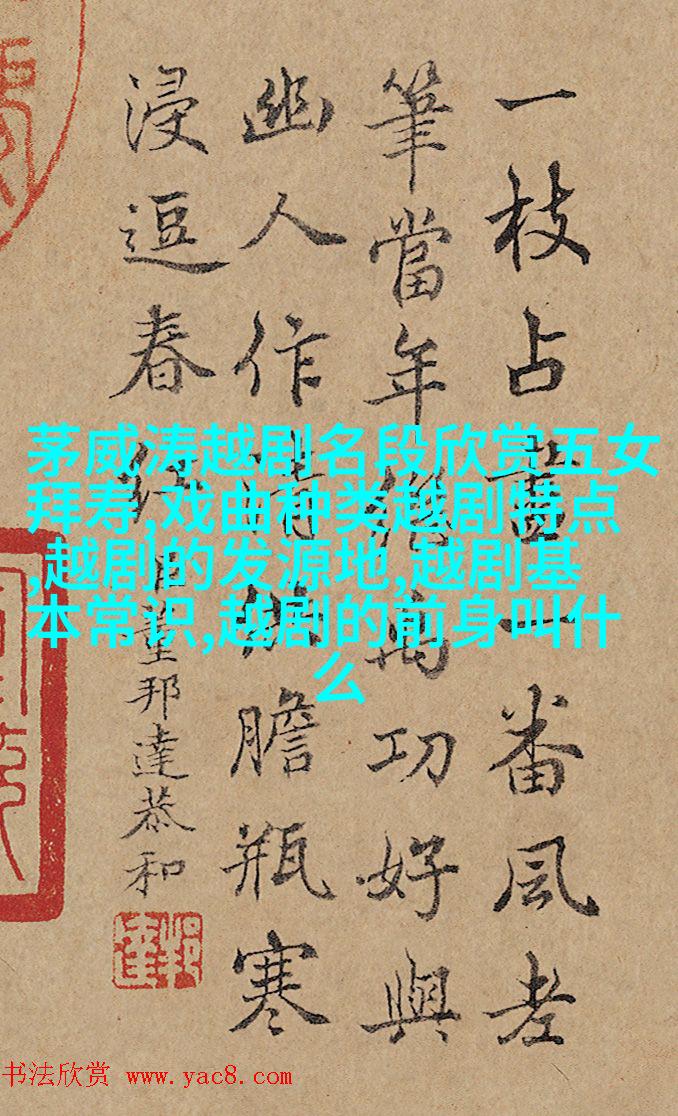 一枝占盡一番風老
筆當年繪禹功好與
幽人作清供膽瓶寒
浸逗春紅 臣董邦達恭和
茅威涛越剧名段欣赏五女
拜寿,戏曲种类越剧特点
,越剧的发源地,越剧基
本常识,越剧的前身叫什
么
邦達
书法欣赏 www.yac8.com